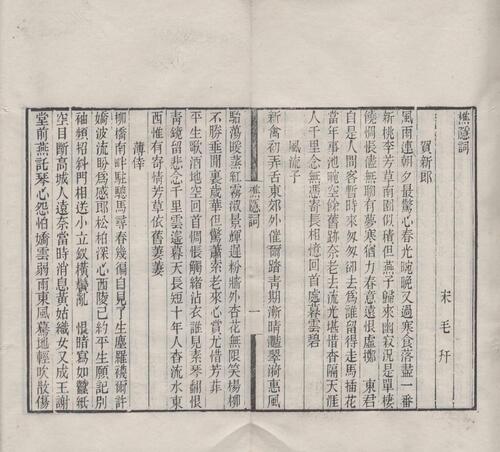 樵隱詞
宋 毛幵
賀新郎
風雨連朝夕最驚心春光晼晚又過寒食落盡一番
新桃李芳草南園似積但燕子歸來幽寂況是單棲
饒惆悵盡無聊有夢寒猶力春意遠恨虛擲 東君
自是人間客暫時來匆匆卻去為誰留得走馬插花
當年事池畹空餘舊跡奈老去流光堪惜杳隔天涯
人千里念無憑寄長相憶回首處暮雲碧
風流子
新禽初弄舌東郊外催爾踏青期漸晴豔翠漪惠風
樵隱詞
一
駘蕩暖蒸紅霧淑景輝遲粉牆外杏花無限笑楊柳
不勝垂閒裏歲華但驚蕭索老來心賞尤惜芳菲
平生歌酒地空回首惆悵觸緒沾衣誰見素琴翻恨
青鏡留悲念千里雲遙暮天長短十年人杳流水東
西惟有寄情芳草依舊萋萋
薄倖
柳橋南畔駐驄馬尋春幾徧自見了生塵羅襪爾許
嬌波流盼為感郎松柏深心西陵已約平生願記別
袖頻招斜門相送小立釵橫鬢亂 恨暗寫如蠶紙
空目斷高城人遠奈當時消息黃姑織女又成王謝
堂前燕託琴心怨怕嬌雲弱雨東風驀地輕吹散傷